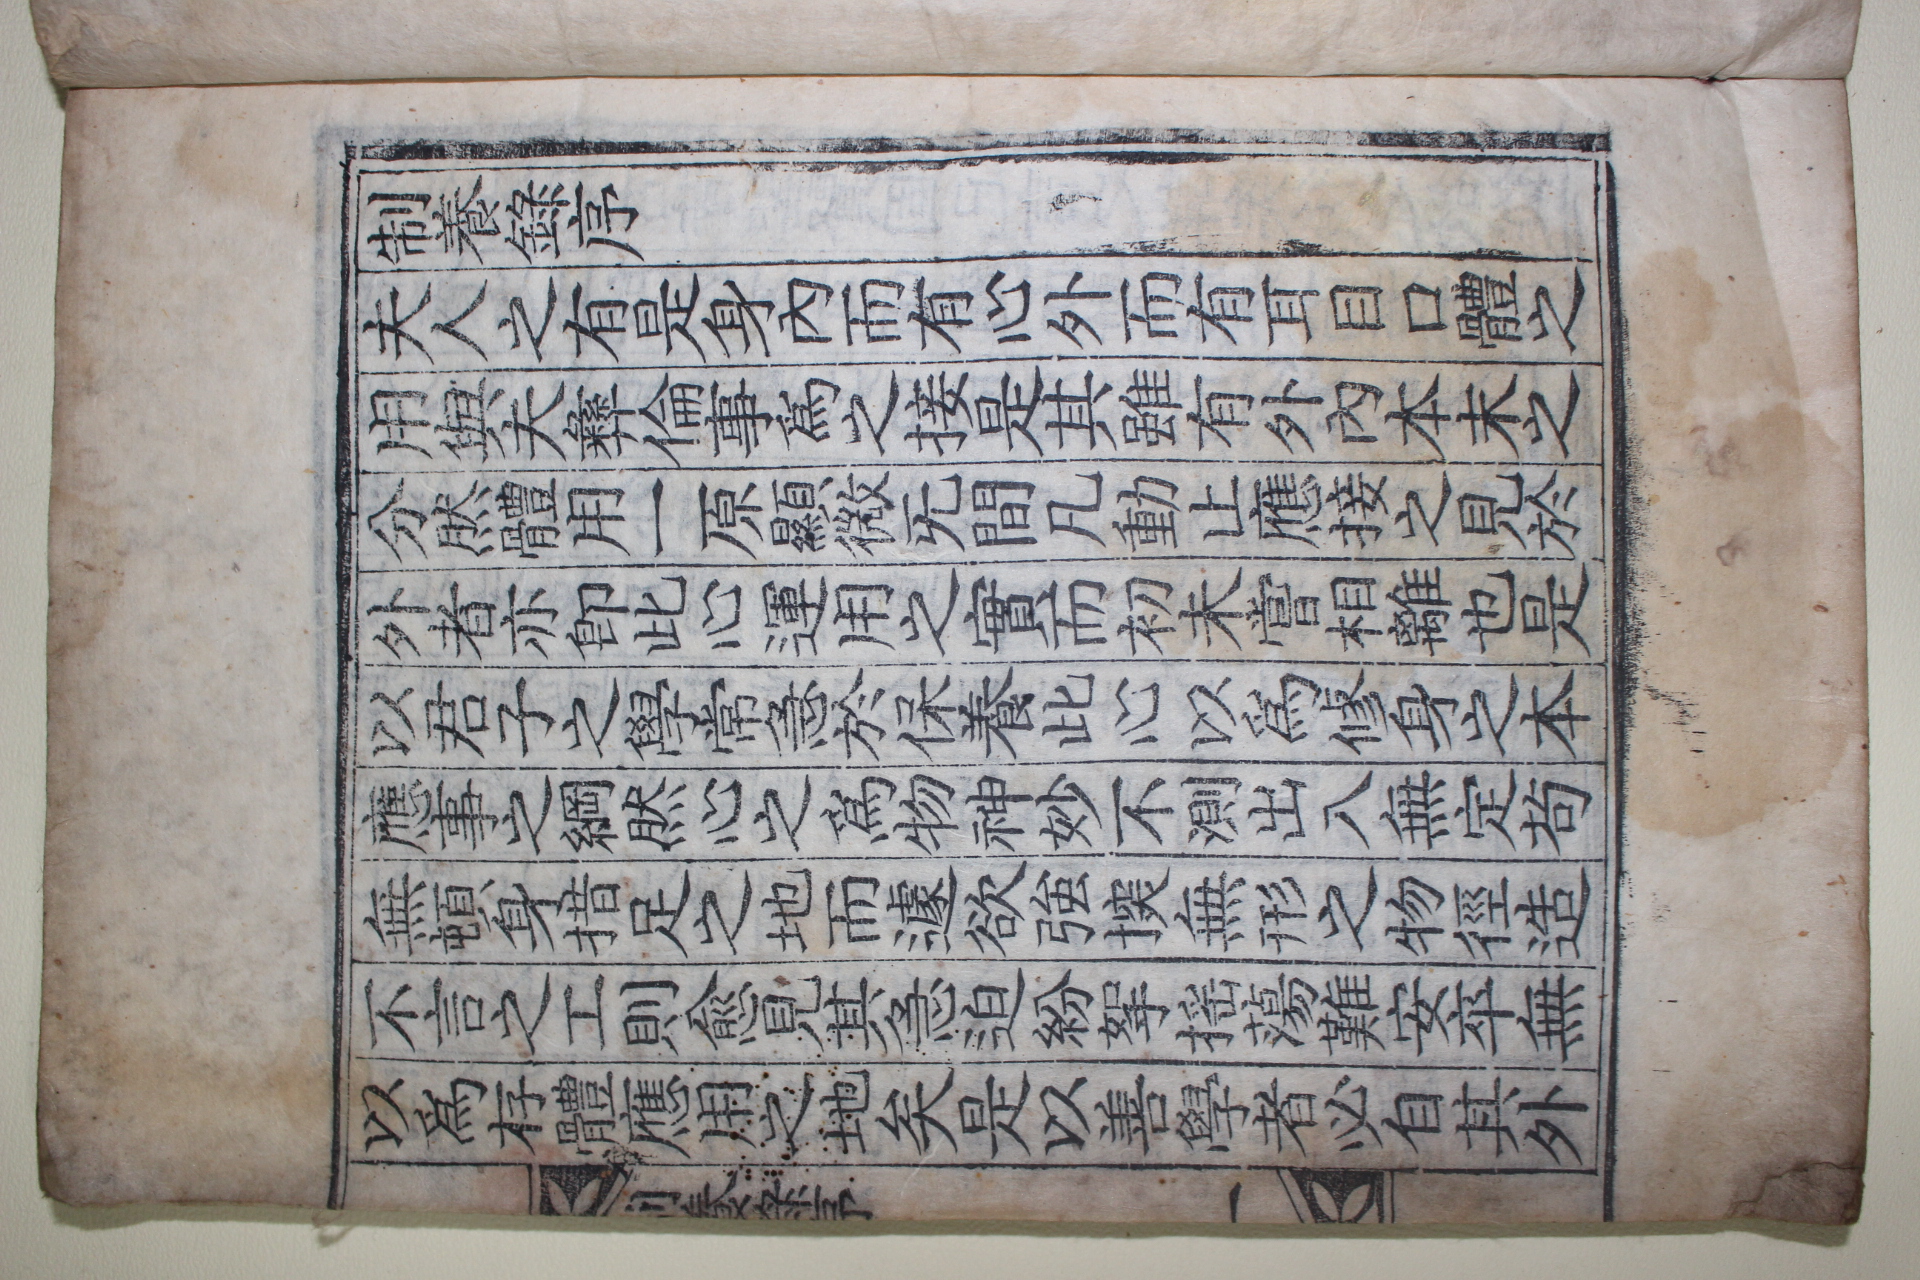 制養錄序
夫人之有是身內而有心外而有耳目口體之
用與夫彝倫事爲之接是其雖有外內本末之
分然體用一原顯微无間凡動止應接之見於
外者亦卽此心運用之實而初未嘗相離也是
以君子之學常急於保養此心以爲修身之本
應事之綱然心之爲物神妙不測出入無定苟
無頓身措足之地而遽欲强探無形之物徑造
不言之工則愈見其急迫紛拏搖蕩難安卒無
以爲存體應用之地矣是以善學者必自其外
制養錄序 一